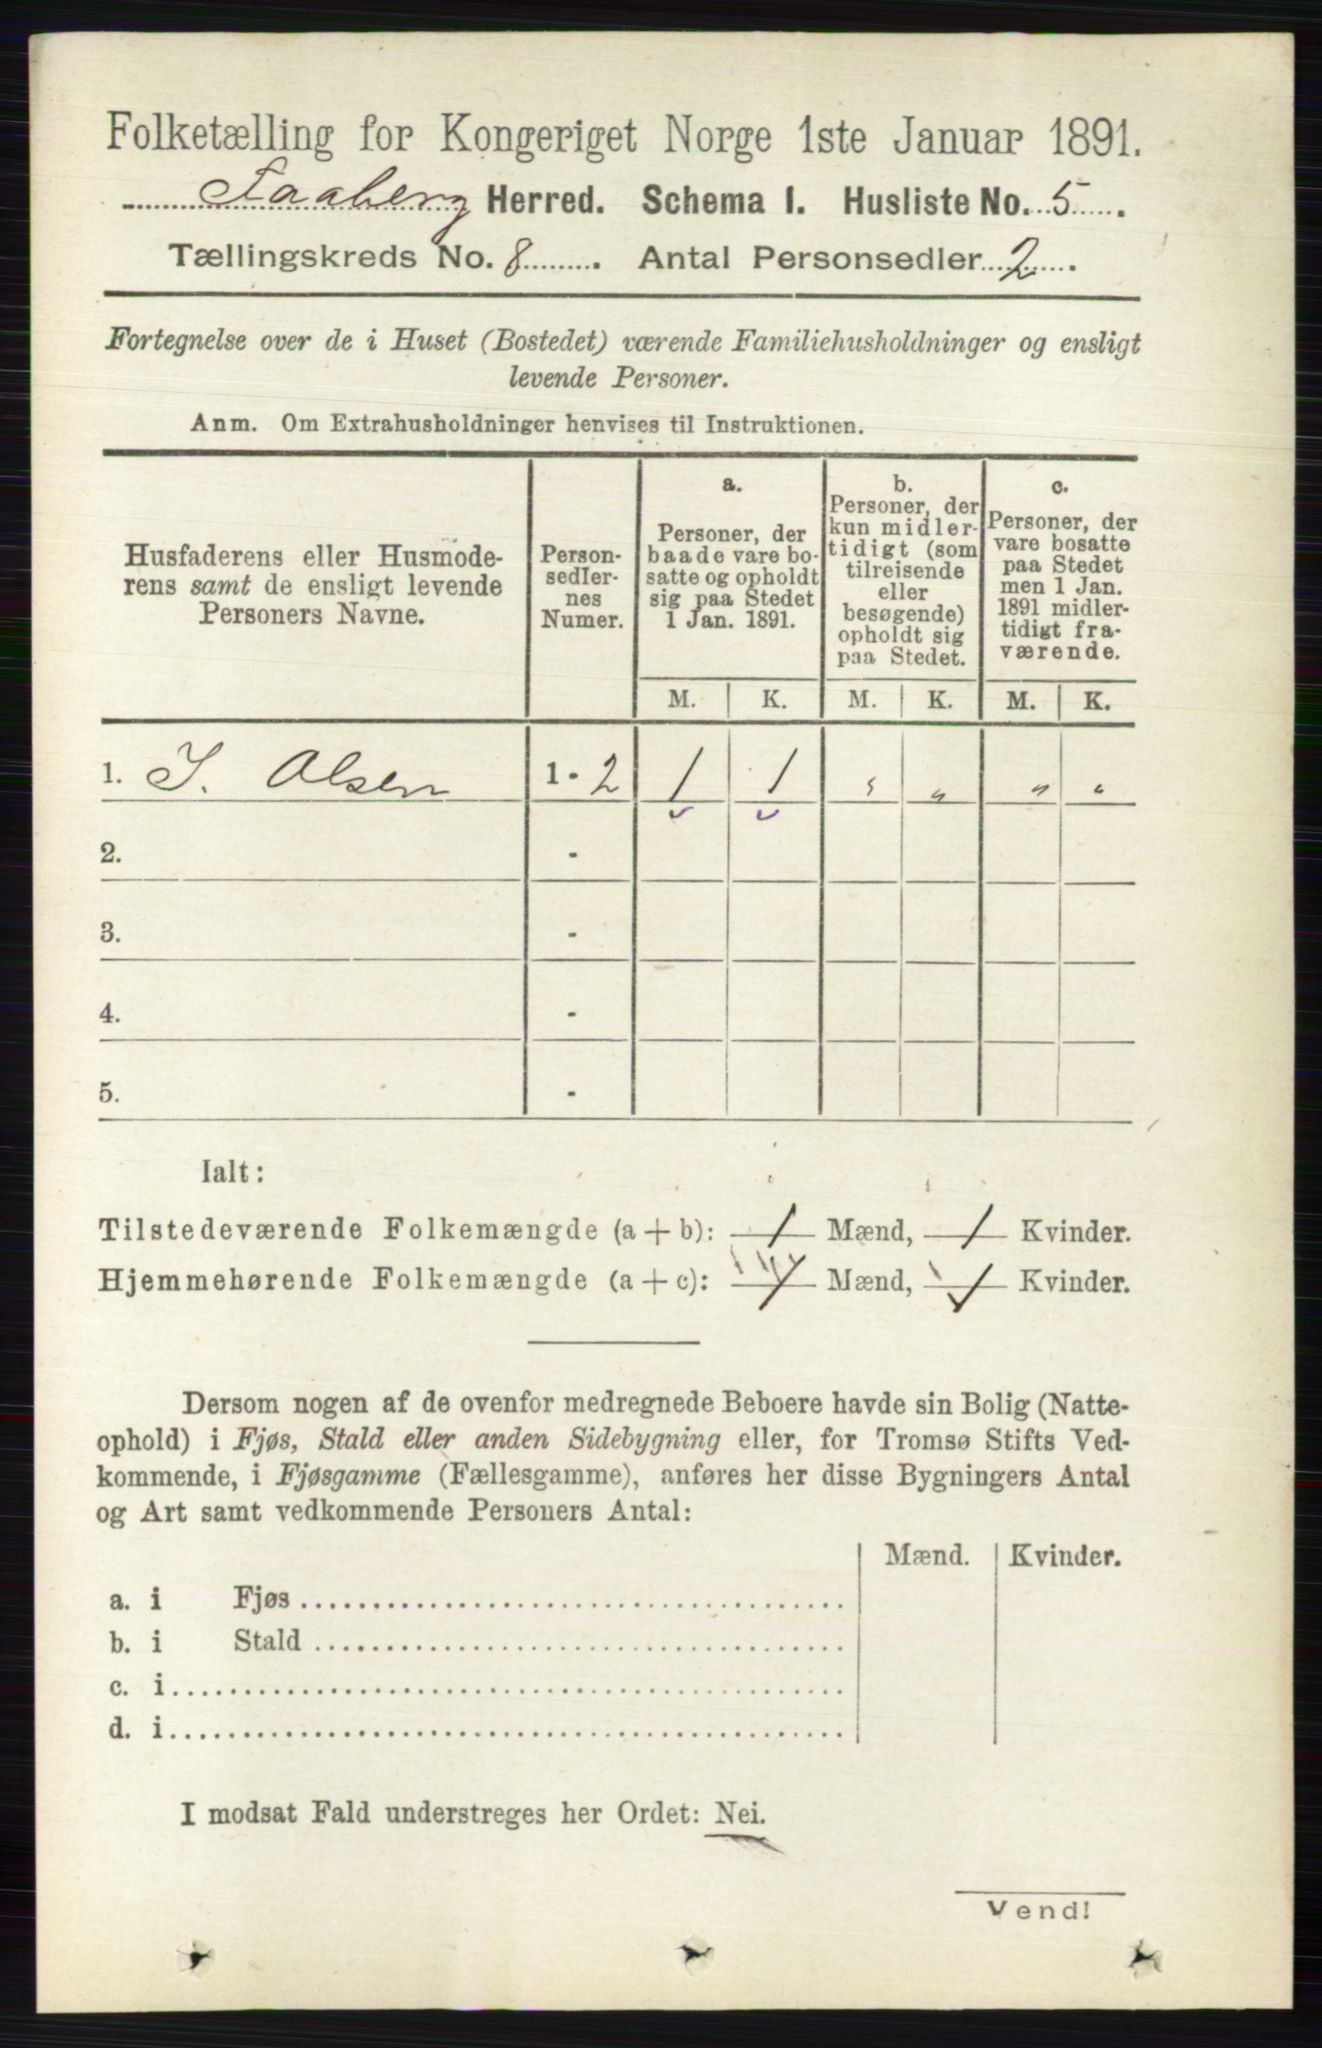 Folketælling for Kongeriget Norge 1ste Januar 1891.
Faaberg Herred. Schema I. Husliste No. 5.
Tællingskreds No. 8. Antal Personsedler 2.
Fortegnelse over de i Huset (Bostedet) værende Familiehusholdninger og ensligt
levende Personer.
Anm. Om Extrahusholdninger henvises til Instruktionen.
Husfaderens eller Husmode-
rens samt de ensligt levende
Personers Navne.
Person-
sedler-
nes
Numer.
a.
Personer, der
baade vare bo-
satte og opholdt
sig paa Stedet
1 Jan. 1891.
b.
Personer, der
kun midler-
tidigt (som
tilreisende
eller
besøgende)
opholdt sig
paa Stedet.
c.
Personer, der
vare bosatte
paa Stedet
men 1 Jan.
1891 midler-
tidigt fra-
værende.
M. K. M. K. M. K.
1. I. Olsen 1 - 2 1 1 " " " "
2. -
3. -
4. -
5. -
Ialt:
Tilstedeværende Folkemængde (a + b): 1 Mænd, 1 Kvinder.
Hjemmehørende Folkemængde (a + c): 1 Mænd, 1 Kvinder.
Dersom nogen af de ovenfor medregnede Beboere havde sin Bolig (Natte-
ophold) i Fjøs, Stald eller anden Sidebygning eller, for Tromsø Stifts Ved-
kommende, i Fjøsgamme (Fællesgamme), anføres her disse Bygningers Antal
og Art samt vedkommende Personers Antal:
Mænd. Kvinder.
a. i Fjøs
b. i Stald
c. i
d. i
I modsat Fald understreges her Ordet: Nei.
Vend!